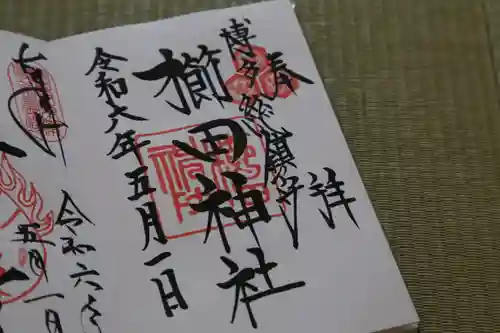 奉拝
博多総鎮守
櫛田神社
令和六年五月一日
令和六年
五月一日